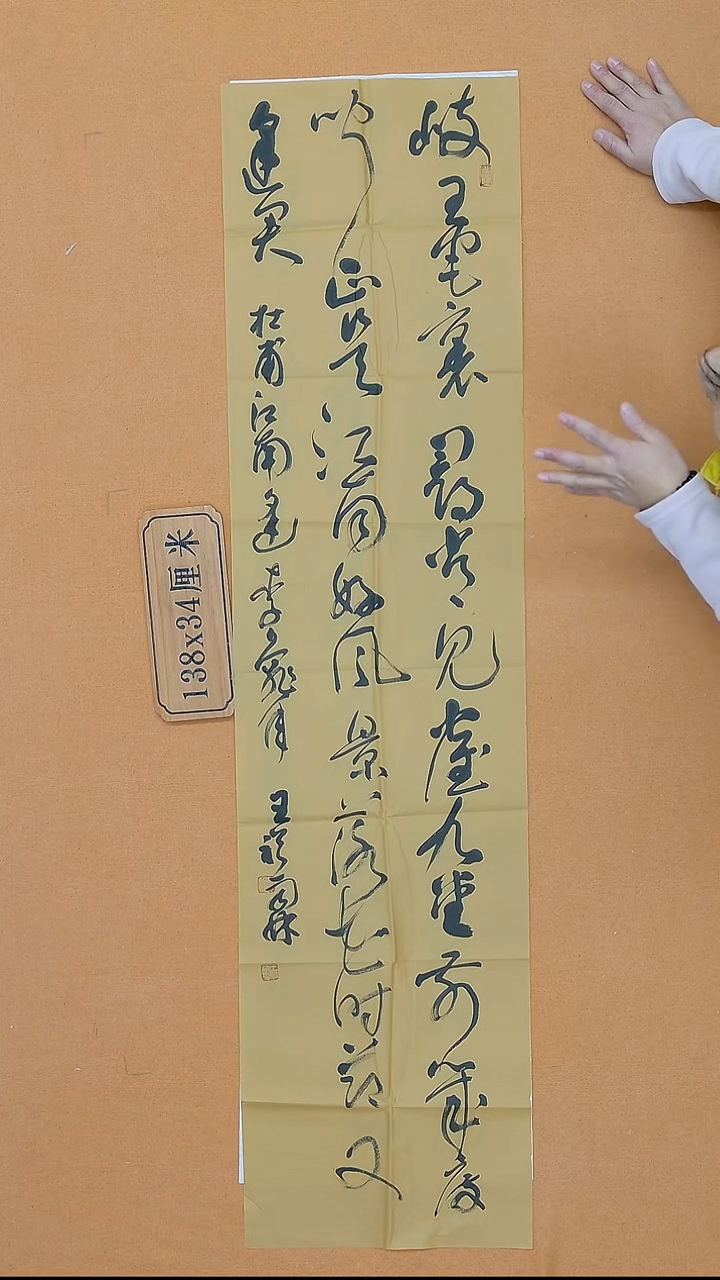 岐王宅裏尋常见崔九堂前幾度
聞正是江南好风景落花时節又
逢君 杜甫江南逢李龜年 王
138x34厘米